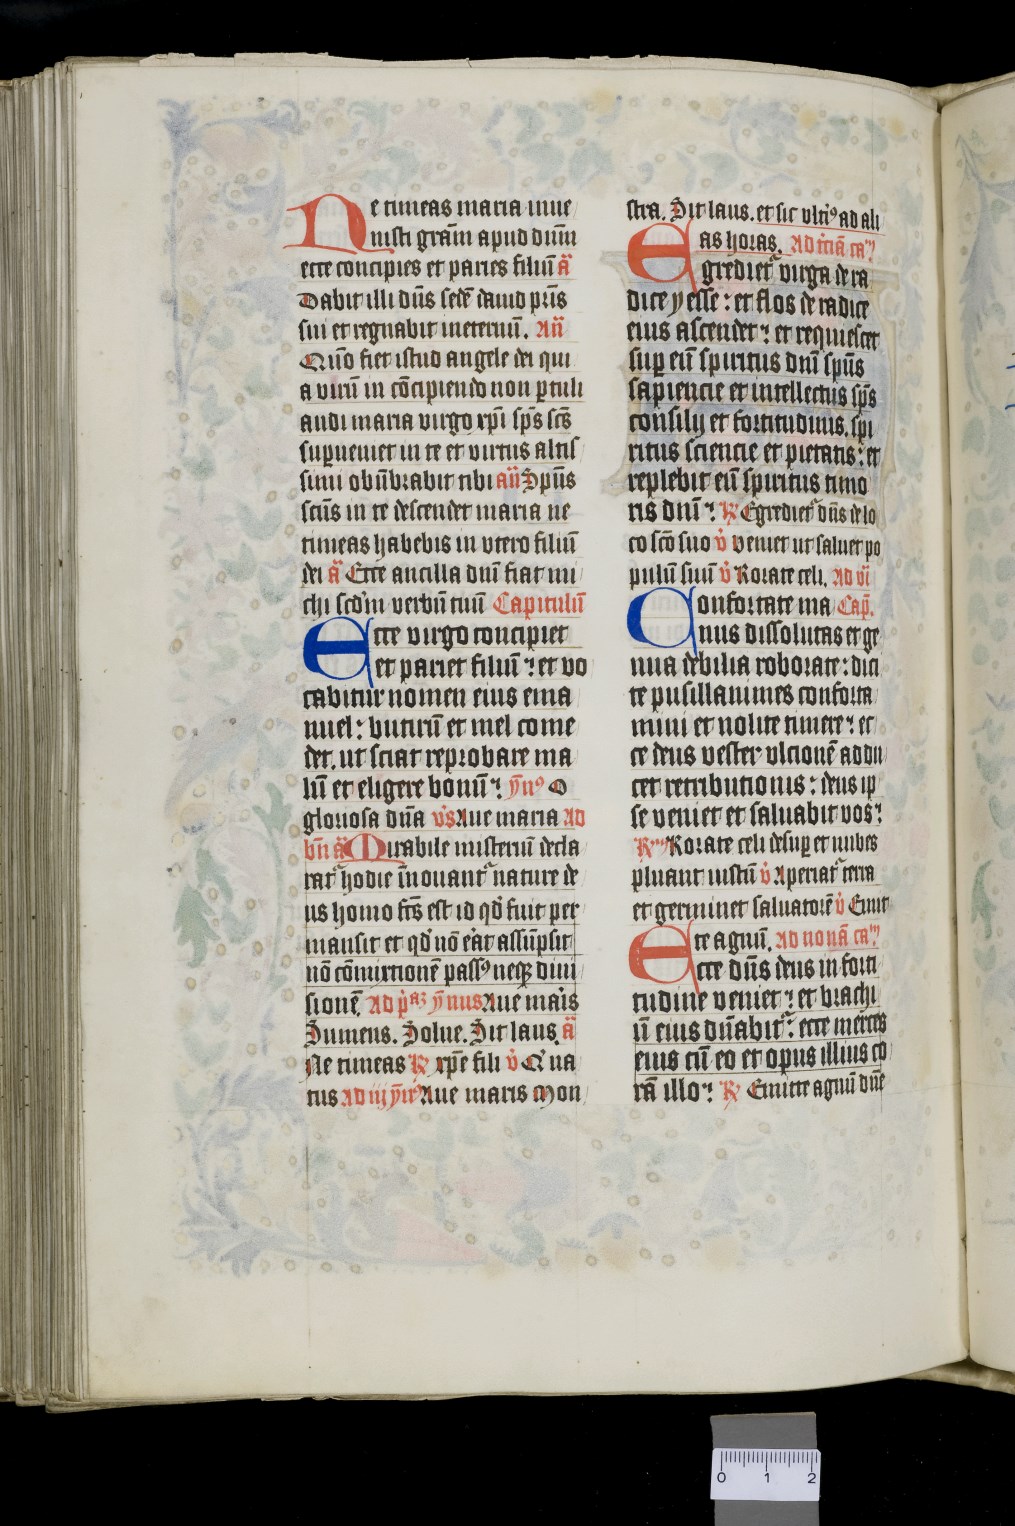 Ne timeas maria inue
nisti gr̄am apud dn̄m
ecce concipies et paries filiū a̅
Dabit illi dn̄s sedē dauid pr̄is
sui et regnabit ineternū. An̄
Quo fiet istud angele dei qui
a virū in cōcipiendo non ptuli
audi maria virgo xp̄i sp̄s sc̄s
supueniet in te et virtus altis
simi obūbrabit tibi an̄ Spūs
scūs in te descendet maria ne
timeas habebis in vtero filiū
dei a̅ Ecce ancilla dn̄i fiat mi
chi scd̓m verbū tuū Capitulū
Ecce virgo concipiet
et pariet filiū : et vo
cabitur nomen eius ema
nuel : butirū et mel come
det. ut sciat reprobare ma
lū et eligere bonū : ẏn⁹ O
gloriosa dn̄a v̓s Aue maria Ad
bn̄ a̅ Mirabile misteriū decla
rat᷑ hodie īnouant᷑ nature de
us homo fc̄s est id qd̓ fuit per
mansit et qd̓ nō erat assūpsit
nō cōmixtionē pass⁹ neqꝫ diui
sionē Ad p̓aꝫ ẏnus Aue maris
Sumens. Solue. Sit laus a̅
Ne timeas ℟ xp̄e fili v̓ Qui na
tus Ad iij ẏn⁹ Aue maris Mon
stra. Sit laus. et sic vlti⁹ ad ali
as horas. Ad t̓ciā ca᷑
Egrediet᷑ virga de ra
dice yesse : et flos de radice
eius ascendet : et requiescet
sup eū spiritus dn̄i spūs
sapiencie et intellectus sp̄s
consilij et fortitudinis. spi
ritus sciencie et pietatis : et
replebit eū spiritus timo
ris dn̄i : ℟ Egrediet᷑ dn̄s de lo
co scō suo v̓ veniet ut saluet po
pulū suū v̓ Rorate celi. Ad vi
Confortate ma Cap̄.
nus dissolutas et ge
nua debilia roborate : dici
te pusillanimes conforta
mini et nolite timere : ec
ce deus vester vlcionē addu
cet retributionis : deus ip
se veniet et saluabit vos :
℟ Rorate celi desup et nubes
pluant iustū v̓ Aperiat᷑ terra
et germinet saluatorē v̓ Emit
te agnū. Ad nonā ca᷑
Ecce dn̄s deus in forti
tudine veniet : et brachi
ū eius dn̄abit᷑ : ecce merces
eius cū eo et opus illius co
rā illo : ℟ Emitte agnū dn̄e